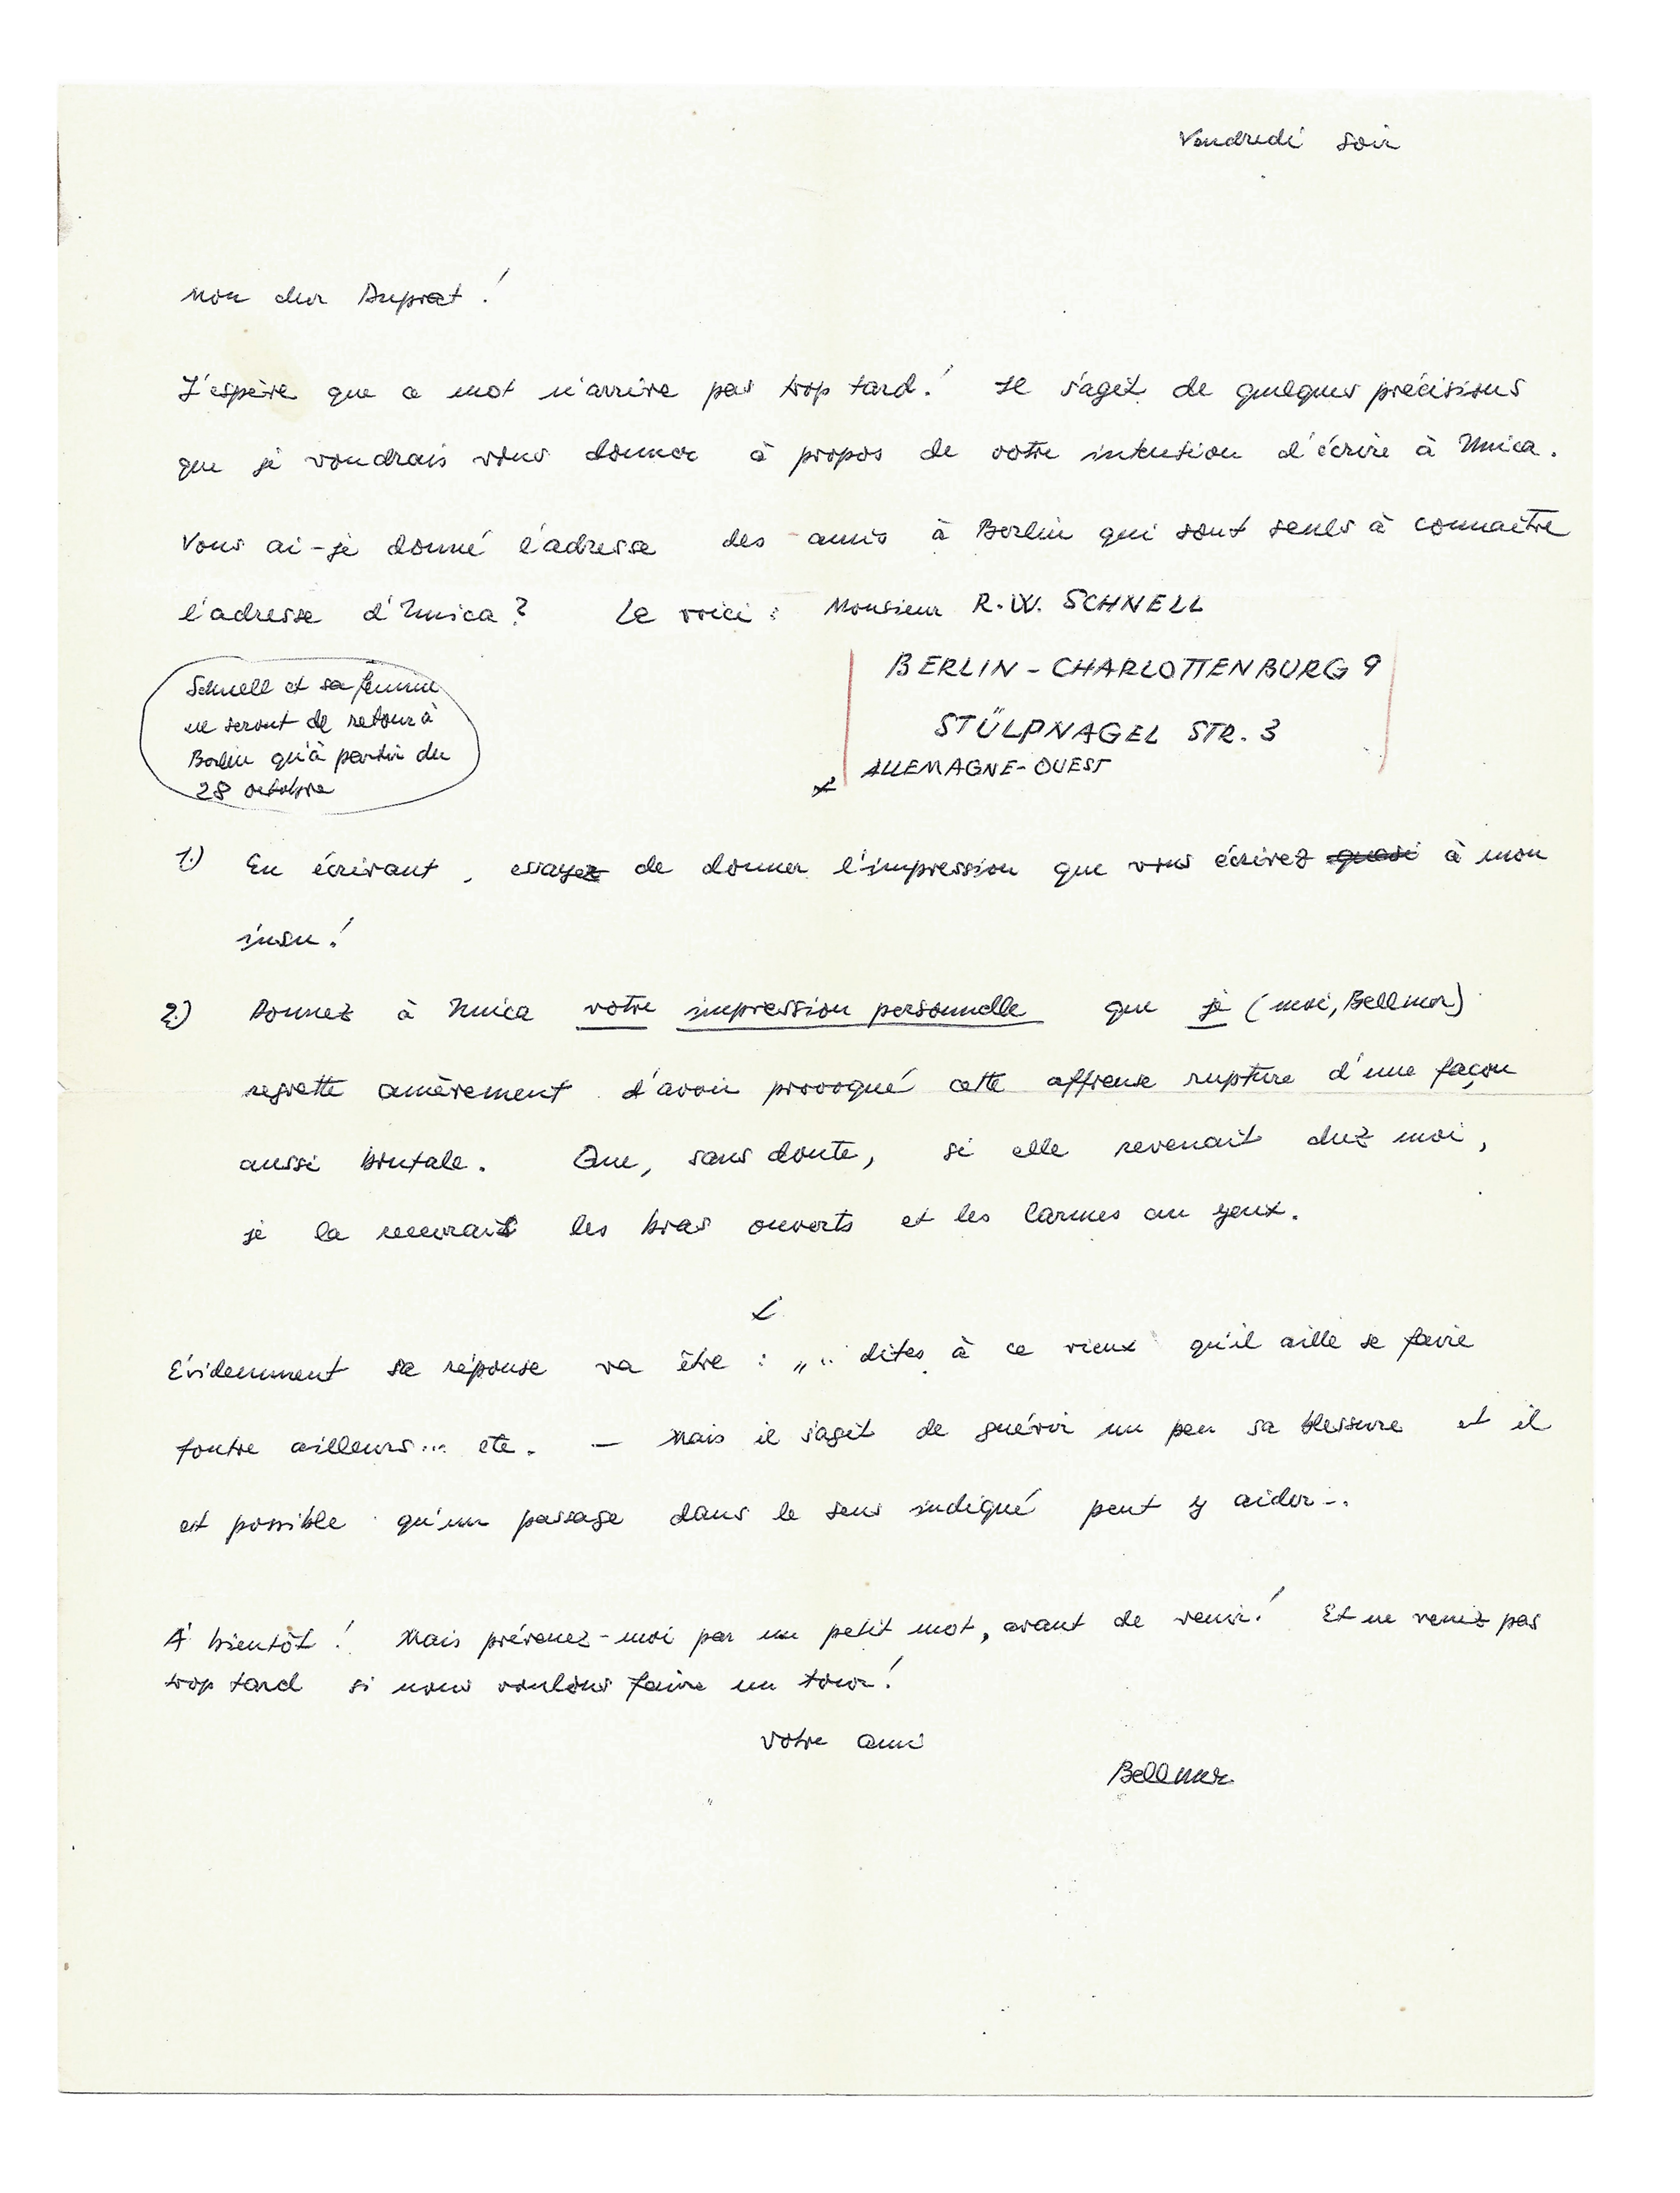 Vendredi soir
Mon cher Duprat !
J'espère que ce mot n'arrive pas trop tard ! Il s'agit de quelques précisions
que je voudrais vous donner à propos de votre intention d'écrire à Unica.
Vous ai-je donné l'adresse des amis à Berlin qui sont seuls à connaître
l'adresse d'Unica ? La voici : Monsieur R.W. SCHNELL
BERLIN - CHARLOTTENBURG 9
STÜLPNAGEL STR. 3
ALLEMAGNE-OUEST
Schnell et sa femme
ne seront de retour à
Berlin qu'à partir du
28 octobre
1.) En écrivant, essayez de donner l'impression que vous écrivez quasi à mon
insu !
2.) Donnez à Unica votre impression personnelle que je (moi, Bellmer)
regrette amèrement d'avoir provoqué cette affreuse rupture d'une façon
aussi brutale. Que, sans doute, si elle revenait chez moi,
je la recevrais les bras ouverts et les larmes au yeux.
Évidemment sa réponse va être : „.. dites à ce vieux qu'il aille se faire
foutre ailleurs... etc. — Mais il s'agit de guérir un peu sa blessure et il
est possible qu'un passage dans le sens indiqué peut y aider..
À bientôt ! Mais prévenez-moi par un petit mot, avant de venir ! Et ne venez pas
trop tard si nous voulons faire un tour !
Votre ami
Bellmer